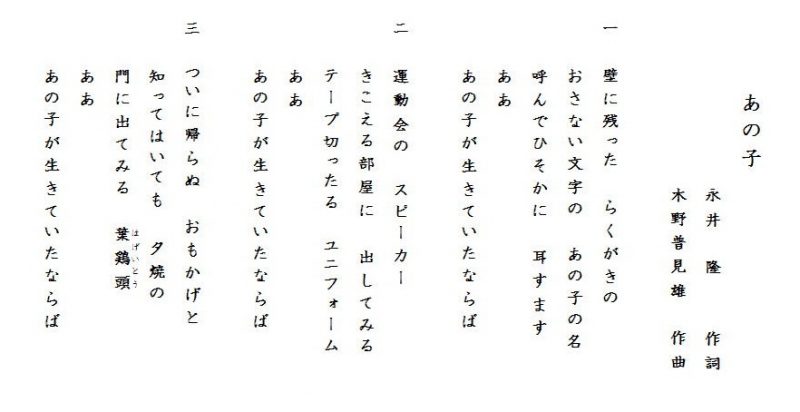 あの子
永井　隆　作詞
木野普見雄　作曲
一　壁に残った　らくがきの
おさない文字の　あの子の名
呼んでひそかに　耳すます
ああ
あの子が生きていたならば
二　運動会の　スピーカー
きこえる部屋に　出してみる
テープ切ったる　ユニフォーム
ああ
あの子が生きていたならば
三　ついに帰らぬ　おもかげと
知ってはいても　夕焼の
門に出てみる　葉鶏頭
はげいとう
ああ
あの子が生きていたならば